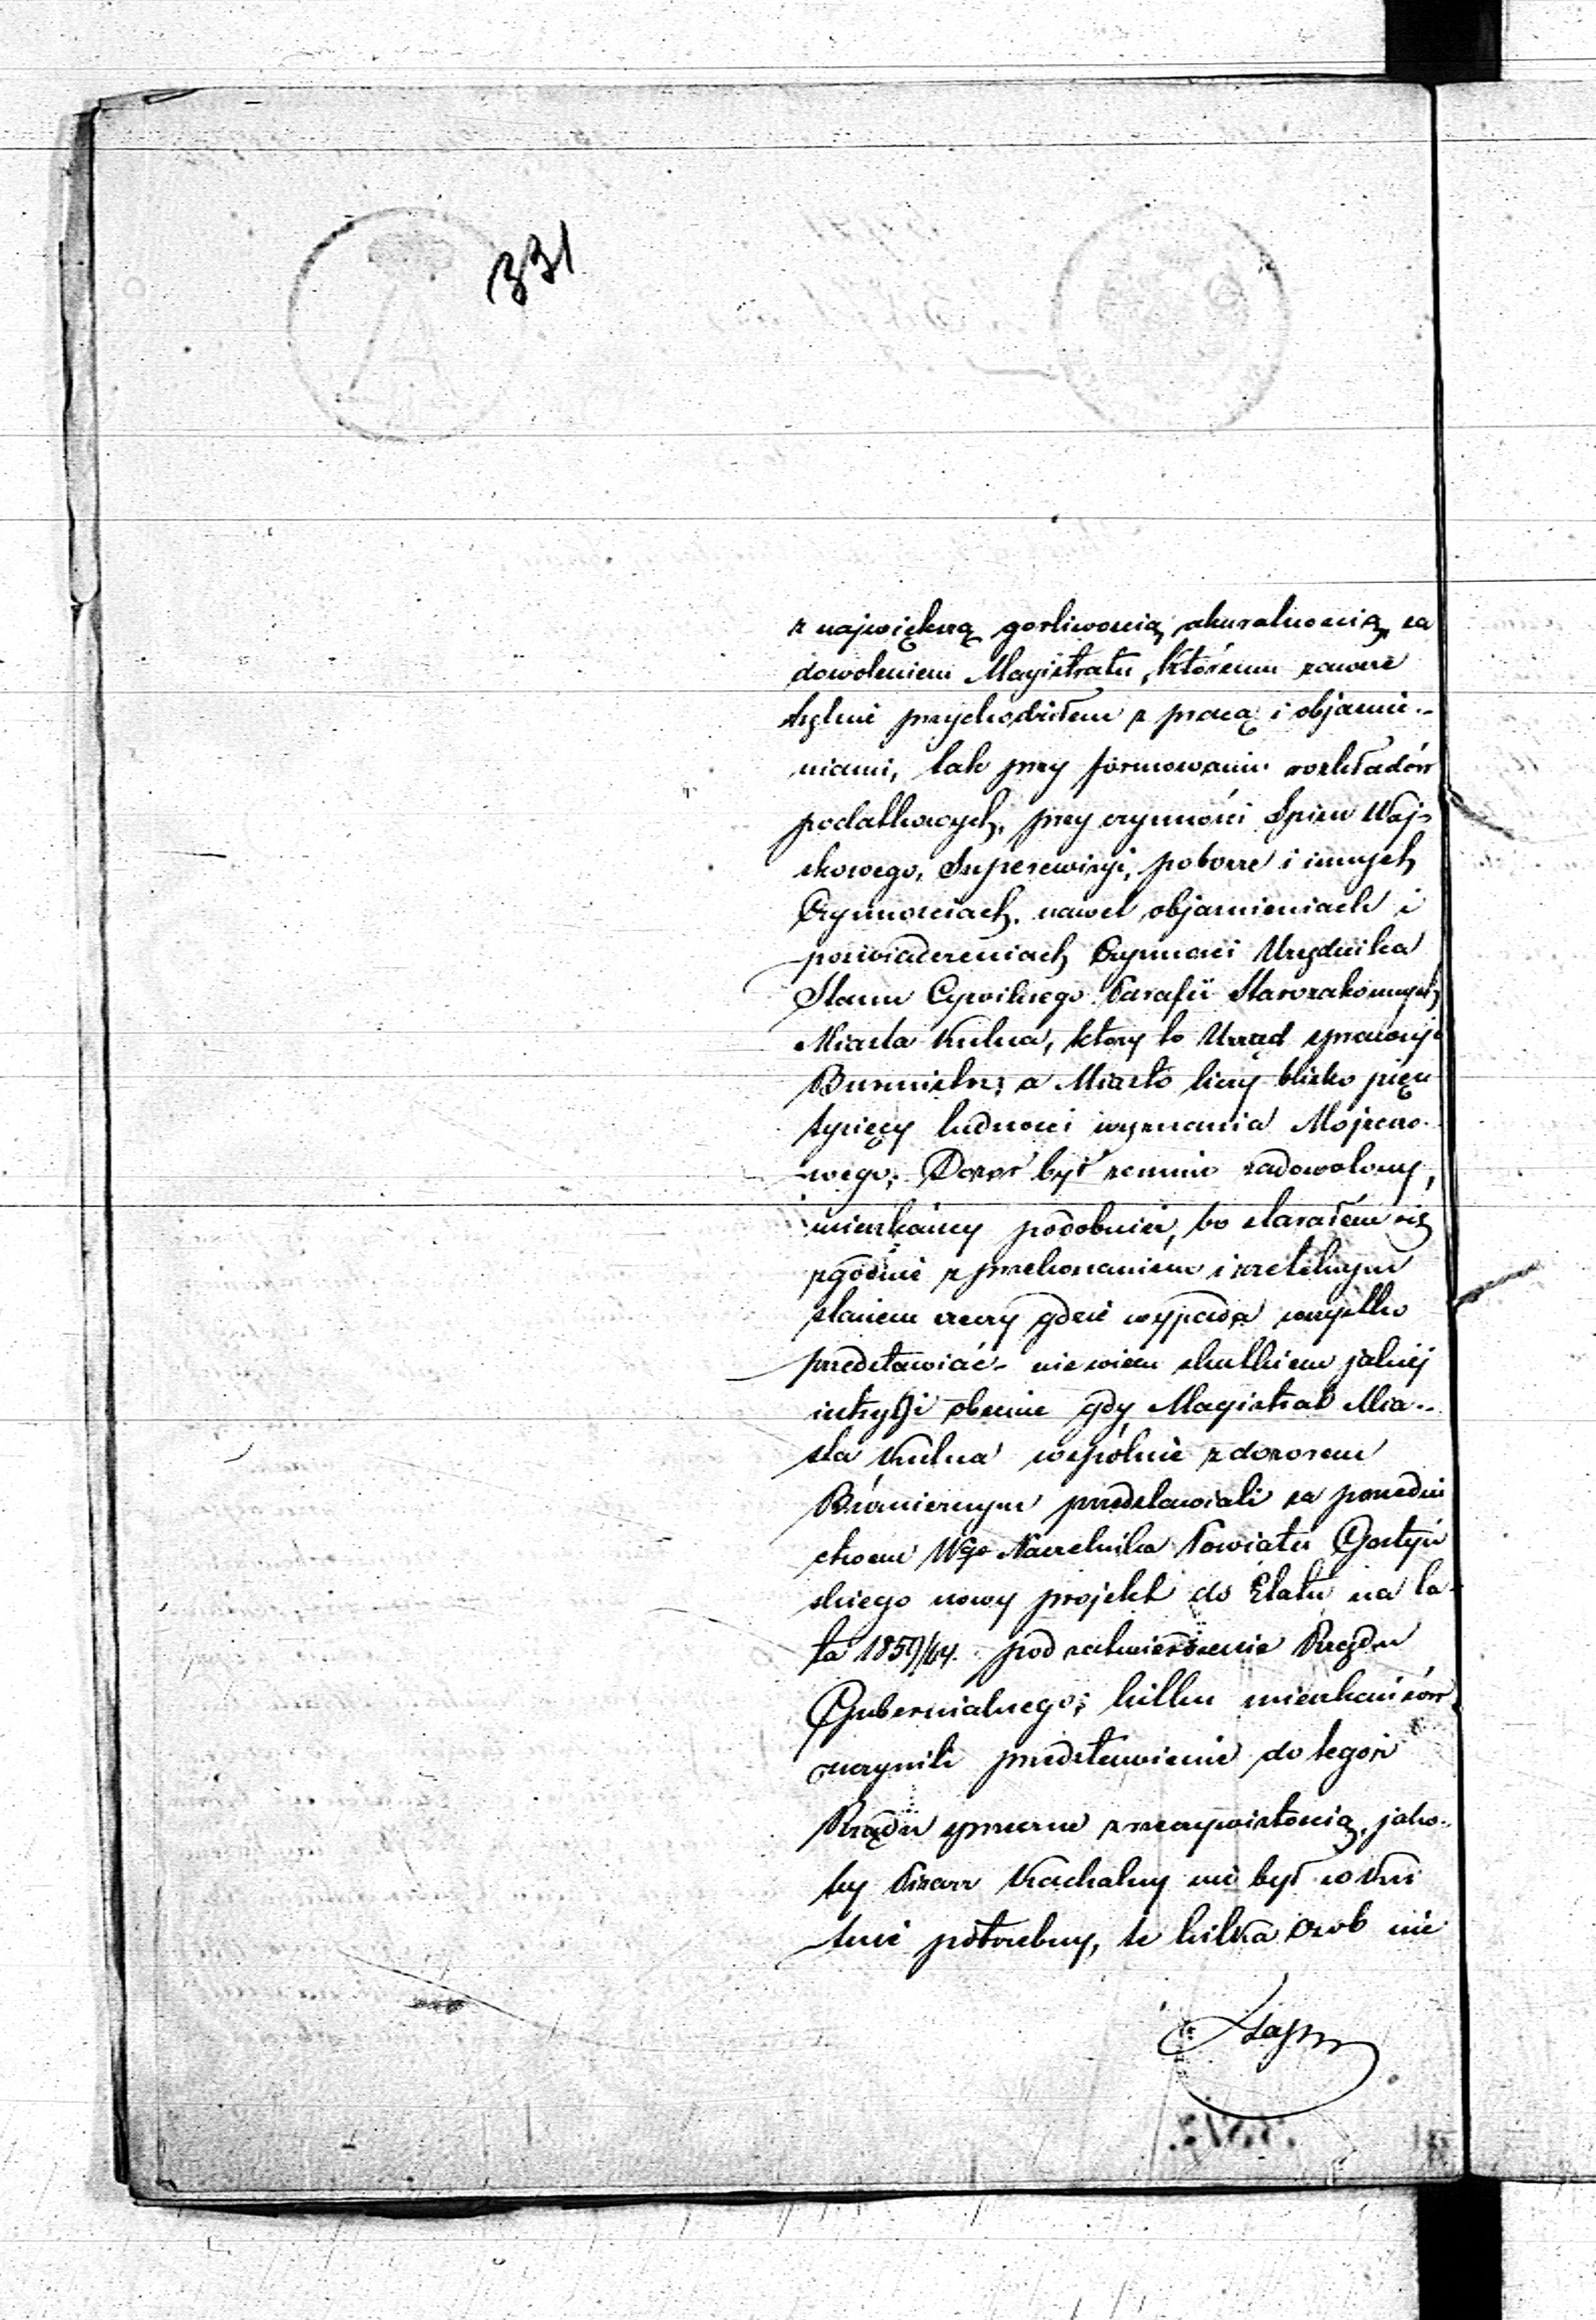 331
z największą gorliwością akuratnością, za
dowoleniem Magistratu, któremu zawsze
chętnie przychodziłem z pracą i objaśnie-
niami, tak przy formowaniu rozkładów
podatkowych, przy czynności Spisu Woj-
skowego, Superewizyi, poborze i innych
Czynnościach, nawet objaśnieniach i
poświadczeniach Czynności Urzędnika
Stanu Cywilnego Parafii Starozakonnych
Miasta Kutna, który to Urząd sprawuje
Burmistrz; a Miasto liczy blisko pięc
tysięcy ludności wyznania Mojżeszo-
wego; Dozór był zemnie zadowolony,
mieszkańcy podobnież, bo starałem się
zgodnie z przekonaniem i rzetelnym
stanem rzeczy gdzie wypada wszystko
przedstawiać - nie wiem skutkiem jakiej
intrygi obecnie gdy Magistrat Mia-
sta Kutna wspólnie z dozorem
Bóżniczym przedstawiali za pośredni
ctwem Wgo Naczelnika Powiatu Gostyń
skiego nowy projekt do Etatu na la-
ta 1859/64. pod zatwierdzenie Rządu
Gubernialnego; kilku mieszkańców
uczynili przedstawienie do tegoż
Rządu sprzeczne z rzeczywistością, jako-
by Pisarz Kachalny nie był w Kut
nie potrzebny, te kilka osób nie